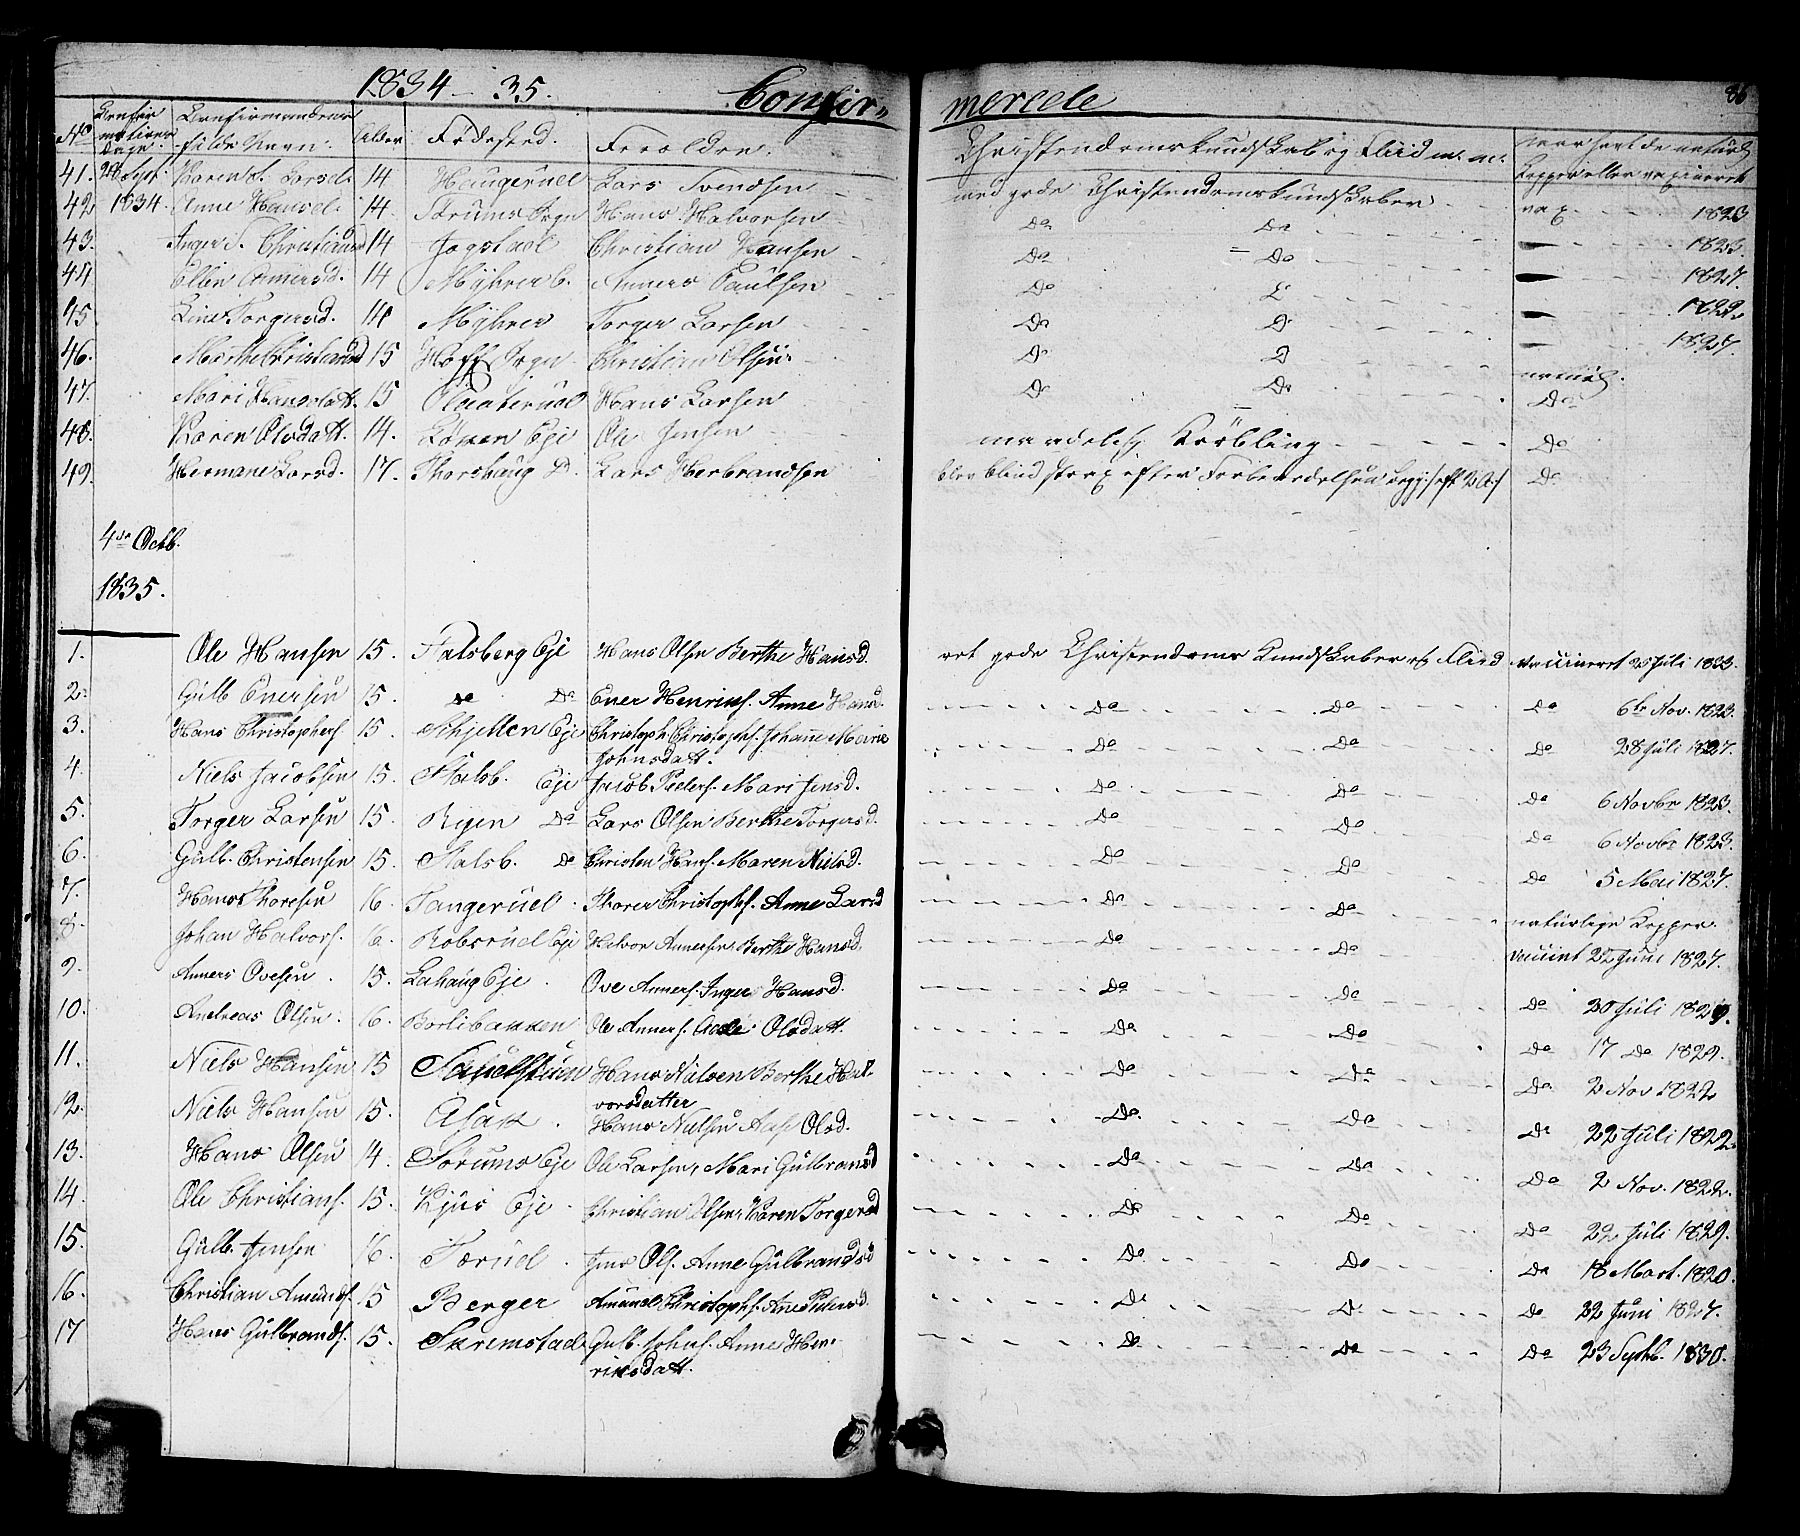 1834 35. Confir- merede 86
No Confirmations Dage. Confirmandens fulde Navn. Alder Fødested. Forældre. Christendomskundskab og Fliid m. m. naar havt de naturl. Kopper eller vaxineret
41. 28 Sept. Karen L. Larsd. 14 Haugerued Lars Svendsen med gode Christendomskundskaber vax. 1823
42 1834. Anne Hansd. 14. Strums Sogn Hans Halvorsen Do Do 1823.
43. Inger S. Christiansd 14 Jogstad Christian Hansen Do Do 1827.
44 Ellen Annersd. 14 Myhrer E. Anners Paulsen Do D 1822.
45 Line Torgersd. 14 Myhrer Torger Larsen Do D 1827.
46. Marthe Christiansd 15 Hoff Sogn Christian Olsen Do D naturl.
47. Mari Hansdatt. 15 Hans Larsen D Do Do
48. Karen Olsdatt. 14. Eje Ole Jensen maadelig Krøbling Do
49. Hermane Larsd. 17. Thorshaug D. Lars Herbrandsen blev blind strax efter Do
4de Octb.
1835.
1. Ole Hansen 15. Stalsberg Eje Hans Olsen Berthe Hansd. ret gode Christendoms Kundskaber og Fliid vaccineret 25 Juli 1823.
2. Gulb Enersen 15. Do Do Ener Henriks. Anne Hansd. Do Do Do 6te Nov. 1823.
3. Hans Christophers. 15. Skjetten Eje Christoph Christophs. Johanne Marie Do Do Do 28 Juli 1827.
Johnsdatt.
4. Niels Jacobsen 15. Stalsb. Eje Jacob Peders. Mari Jensd. Do Do Do 6 Novbr 1823.
5. Torger Larsen 15. Ryen Do Lars Olsen Berthe Torgersd. Do Do Do 6 Novbr 1823.
6. Gulb. Christensen 15. Stalsb. Do Christen Hans. Maren Nielsd. Do Do Do 5 Mai 1827.
7. Hans Thoresen 16. Tangerued Thorer Christophs. Anne Larsd Do Do naturlige Kopper.
8. Johan Halvors. 16. Robsrud Eje Halvor Annersen Berthe Hansd. Do Do vaccint 22 Juni 1827.
9. Anners Ovesen 15. Lahaug Eje Ove Anners. Inger Hansd. Do Do Do 20 Juli 1829.
10. Andreas Olsen 16. Borlibakken Ole Anners. Olsdatt. Do Do Do 17 Do 1829.
11. Niels Hansen 15 Hans Nilsen Berthe Hal- Do Do Do 2 Nov 1822
vorsdatter
12. Niels Hansen 15. Asak Hans Nielsen Olsd. Do Do Do 22 Juli 1822.
13. Hans Olsen 14. Sørums Eje Ole Larsen, Mari Gulbransd Do Do Do 2 Nov. 1822.
14. Ole Christians. 15. Kjus Eje Christian Olsen, Karen Torgersd Do Do Do 22 Juli 1829.
15. Gulb. Jensen 16. Tærud Jens Ols. Anne Gulbrandsd Do Do Do 18 Mart. 1820.
16. Christian Amunds. 15 Berger Amund Christophs. Ane Pedersd. Do D Do 22 Juni 1827.
17 Hans Gulbrands. 15. Skremstad Gulb. Johns. Anne Hen- D Do Do 23 Septb. 1830.
riksdatt.